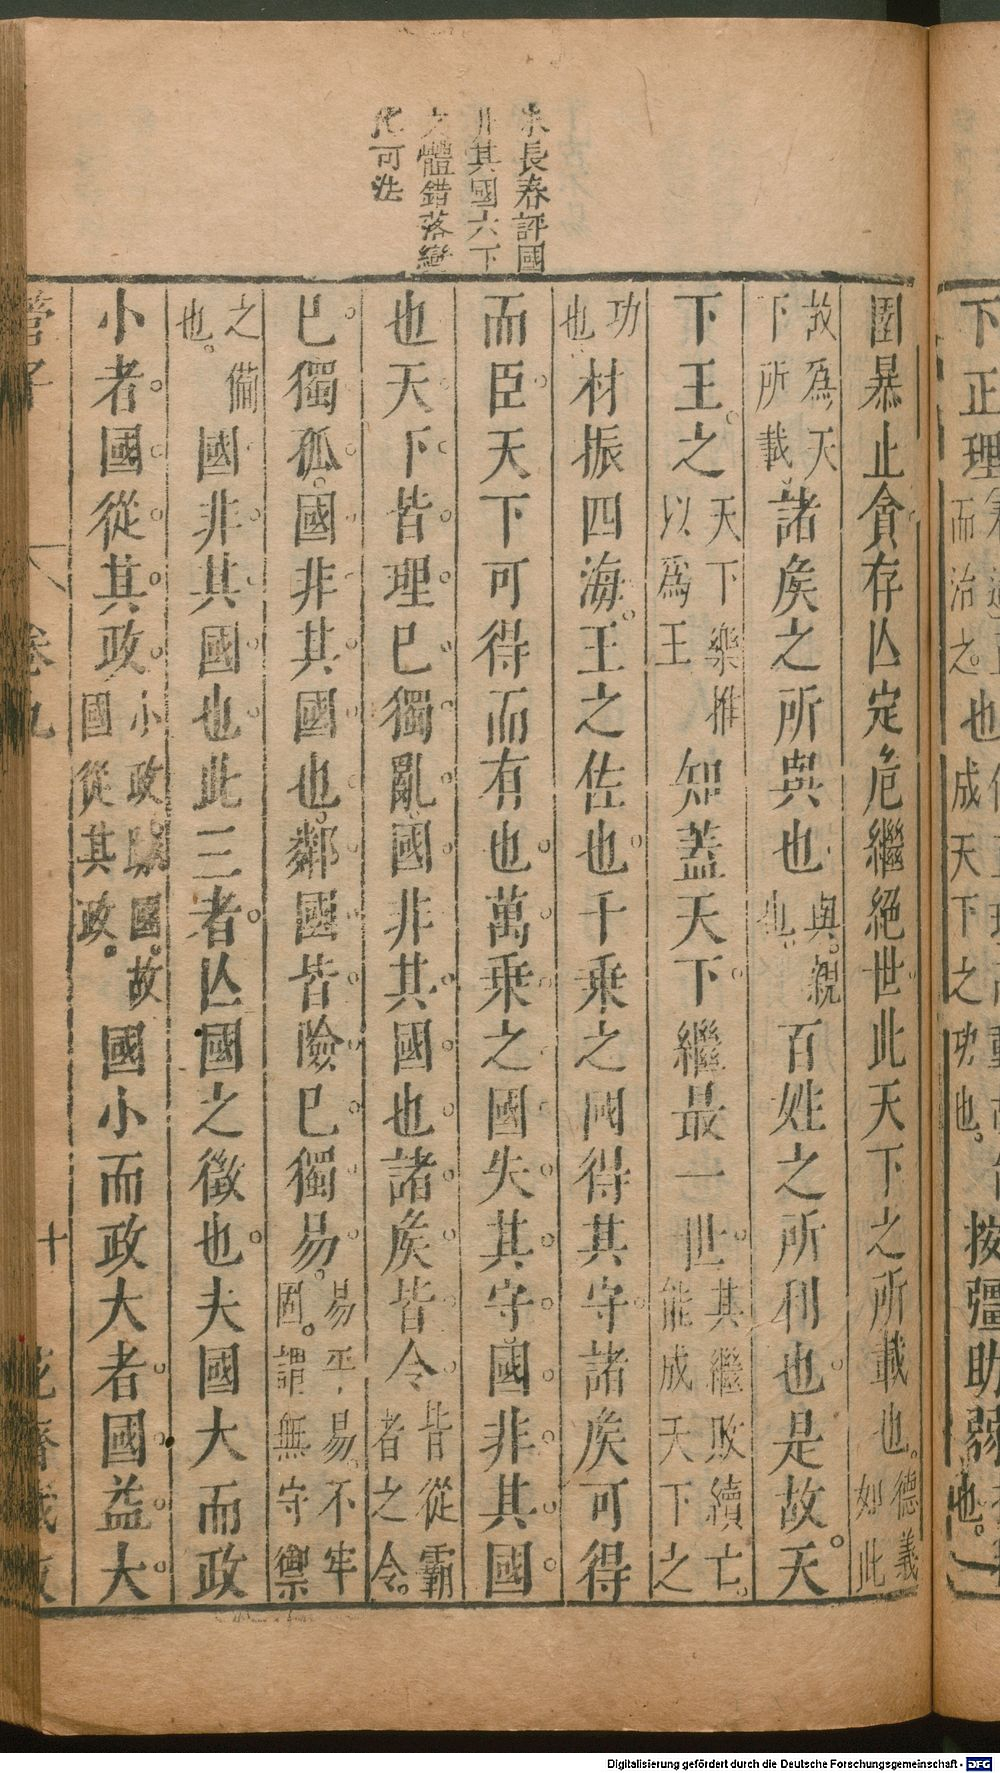 朱長春評國
非其國六下
文體錯落變
化可法
圉暴止貪存亾定危繼絕世此天下之所載也。德義如此
故爲天下所載諸矦之所與也與。親也。百姓之所利也是故。天
下王。之天下樂推以爲王知蓋天下繼最一世其繼敗續亡。能成天下之
功也材振四海。王之佐也千乘之國得其守諸矦可得
而臣天下可得而有也萬乘之國失其守。國非其國
也天下皆理已獨亂國非其國也諸矦皆令皆從霸者之令。
已獨孤。國非其國也。鄰國皆險已獨易。易平易。不牢固。謂無守禦
之備也。國非其國也此三者亾國之徵也夫國大而政
小者國從其政小政䠞國。故國從其政。國小而政大者國益大
管子
卷九
十
花齋藏板
下正理
而治之。也
成天下之功也。
按彊助弱
也。
Digitalisierung gefördert durch die Deutsche Forschungsgemeinschaft - DFG